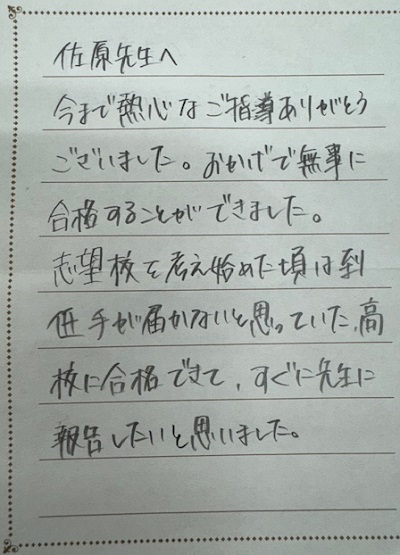 佐原先生へ
今まで熱心なご指導ありがとう
ございました。おかげで無事に
合格することができました。
志望校を考え始めた頃は到
底手が届かないと思っていた、高
校に合格できて、すぐに先生に
報告したいと思いました。